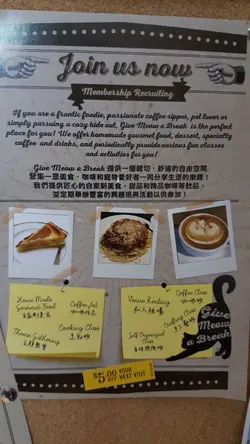 Join us now
Membership Recruiting
If you are a frantic foodie, passionate coffee sipper, pet lover or
simply pursuing a cozy hide out, Give Meow a Break is the perfect
place for you! We offer homemade gourmet food, dessert, specialty
coffee and drinks, and periodically provide various fun classes
and activities for you!
Give Meow a Break 提供一個親切、舒適的自由空間
聚集一眾美食、咖啡和寵物愛好者一同分享生活的樂趣！
我們提供匠心的自家制美食、甜品和精品咖啡等飲品，
並定期舉辦豐富的興趣班與活動以供參加！
House Made
Gourmet Food
自家制美食
Coffee Art
咖啡拉花
Theme Gathering
主題聚會
Cooking Class
烹飪班
Venue Renting
私人租場
Coffee Class
咖啡班
Self Organized
Class
Crafting Class
手工藝班
Give
Meow
a Break
$5.00 YOUR
OFF NEXT VISIT